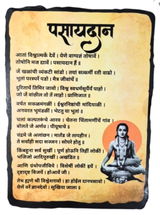 पसायदान
आतां विश्वात्मकें देवें । येणें वाग्यज्ञें तोषावें ।
तोषोनि मज द्यावें । पसायदान हें ॥
जें खळांची व्यंकटी सांडो । तयां सत्कर्मी रती वाढो ।
भूतां परस्परें पडो । मैत्र जीवांचें ॥
दुरितांचें तिमिर जावो । विश्व स्वधर्मसूर्यें पाहो ।
जो जें वांच्छील तो तें लाहो । प्राणिजात ॥
वर्षत सकळमंगळीं । ईश्वरनिष्ठांची मांदियाळी ।
अनवरत भूमंडळीं । भेटतु या भूतां ॥
चलां कल्पतरूंचे आरव । चेतना चिंतामणींचें गांव ।
बोलते जे अर्णव । पीयूषांचे ॥
चंद्रमे जे अलांछन । मार्तंड जे तापहीन ।
ते सर्वांही सदा सज्जन । सोयरे होतु ॥
किंबहुना सर्व सुखीं । पूर्ण होऊनि तिहीं लोकीं ।
भजिजो आदिपुरुखीं । अखंडित ॥
आणि ग्रंथोपजीविये । विशेषीं लोकीं इयें ।
दृष्टादृष्ट विजयें । होआवें जी ।
तेथ म्हणे श्री विश्वेश्वरावो । हा होईल दानपसावो ।
येणें वरें ज्ञानदेवो । सुखिया जाला ॥